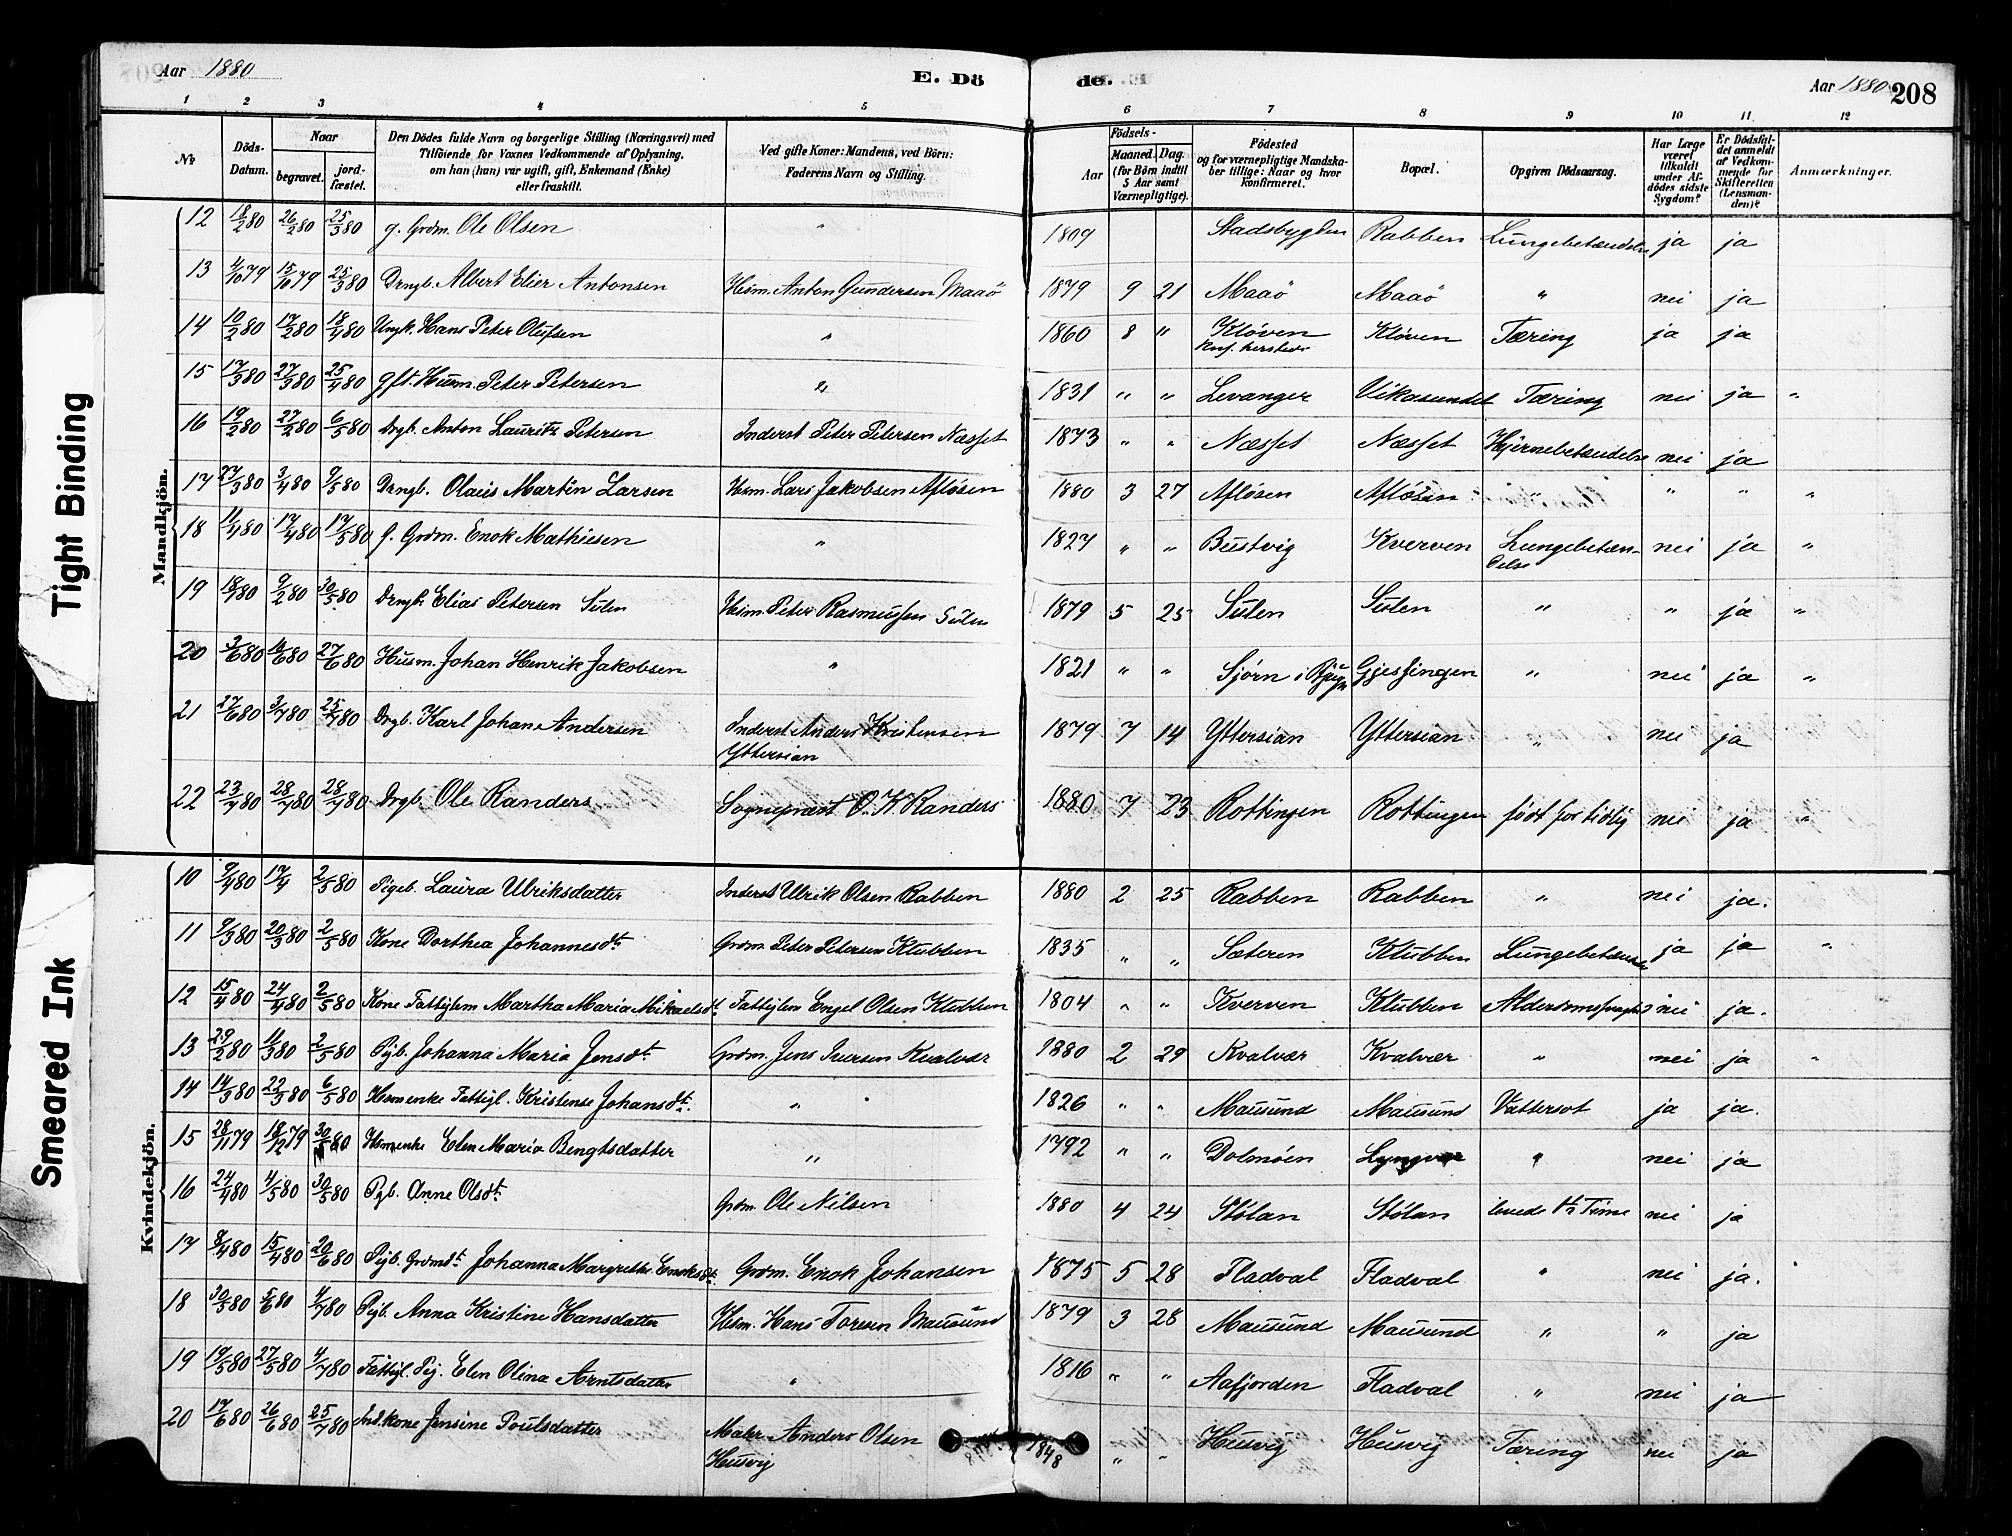 Aar 1880 E. Dö de. Aar 1880 208
1 2 3 4 5 6 7 8 9 10 11. 12
No
Döds-Datum.
Naar
begravet. jord-fæstet.
Den Dödes fulde Navn og borgerlige Stilling (Næringsvei) med
Tilföiende for Voxnes Vedkommende af Oplysning,
om han (hun) var ugift, gift, Enkemand (Enke)
eller fraskilt.
Ved gifte Koner: Mandens, ved Börn:
Faderens Navn og Stilling.
Födsels-
Aar Maaned. Dag.
(for Börn indtil
5 Aar samt
Værnepligtige).
Födested
og for værnepligtige Mandska-
ber tillige: Naar og hvor
konfirmeret.
Bopæl.
Opgiven Dödsaarsag.
Har Læge
været
tilkaldt
under Af-
dödes sidste
Sygdom?
Er Dödsfal-
det anmeldt
af Vedkom-
mende for
Skifteretten
(Lensman-
den)?
Anmærkninger.
Mandkjön.
12 18/2 80 26/2 80 25/3 80 g. Grdm. Ole Olsen " 1809 Stadsbygden Rabben Lungebetændelse ja ja
13 4/10 79 15/10 79 25/3 80 Drngb. Albert Elier Antonsen Hsm. Anton Gundersen Maaö 1879 9 21 Maaö Maaö " nei ja
14 10/2 80 17/2 80 18/4 80 Ungk. Hans Peter Olufsen " 1860 8 " Kløven Kløven Tæring ja ja
15 17/3 80 27/3 80 25/4 80 gft. Husm. Peter Petersen " 1831 " " Levanger Vikasundet Tæring nei ja "
16 19/2 80 27/2 80 6/5 80 Drgb. Anton Lauritz Petersen Inderst Peter Petersen Næsset 1873 " " Næsset Næsset Hjernebetændelse nei ja
17 27/3 80 3/4 80 9/5 80 Drngb. Olaus Martin Larsen Hsm. Lars Jakobsen Afløsen 1880 3 27 Afløsen Afløsen " " " "
18 11/4 80 17/4 80 17/5 80 g. Grdm. Enok Mathiesen " 1827 " " Bustvig Kverven Lungebetæn-
delse nei ja "
19 18/1 80 9/2 80 30/5 80 Drngb. Elias Petersen Sulen Hsm. Peter Rasmussen Sulen 1879 5 25 Sulen Sulen " " ja "
20 3/6 80 11/6 80 27/6 80 Husm. Johan Henrik Jakobsen " 1821 " " Sjørn i Gjessingen " nei ja "
21 27/6 80 3/7 80 25/7 80 Drgb. Karl Johan Andersen Inderst Anders Kristensen
Yttersian 1879 7 14 Yttersian Yttersian " nei ja
22 23/7 80 28/7 80 28/7 80 Drgb. Ole Randers Sognepræst O. K. Randers 1880 7 23 Rottingen Rottingen født for tidlig nei ja "
Kvindekjön.
10 9/4 80 17/4 2/5 80 Pigeb. Laura Ulriksdatter Inderst Ulrik Olsen Rabben 1880 2 25 Rabben Rabben " nei ja.
11 9/3 80 20/3 80 2/5 80 Kone Dorthea Johannesdt. Grdm. Peter Petersen Klubben 1835 " " Sæteren Klubben Lungebetændelse ja ja "
12 15/4 80 24/4 80 2/5 80 Kone Fattiglem Martha Maria Mikaelsdt. Fattiglem Engel Olsen Klubben 1804 " " Kverven Klubben nei ja.
13 29/2 80 11/3 80 2/5 80 Pigb. Johanna Maria Jensdt. Grdm. Jens Iversen Kvalvær 1880 2 29 Kvalvær Kvalvær " nei ja "
14 14/3 80 22/3 80 6/5 80 Hsmenke Fattigl. Kristense Johansdt. " 1826 " " Mausund Mausund Vattersot ja ja.
15 28/11 79 18/12 79 30/5 80 Hsmenke Elen Maria Bengtsdatter " 1792 " " Dolmöen Lyngvær " nei ja
16 24/4 80 4/5 80 30/5 80 Pgb. Anne Olsdt. Grdm. Ole Nilsen 1880 4 24 Stølan Stølan levede 1/2 Time nei ja
17 8/4 80 15/4 80 20/6 80 Pigb. Grdmdt. Johanna Margrethe Enoksdt. Grdm. Enok Johansen 1875 5 28 Fladval Fladval " nei ja.
18 30/5 80 5/6 80 4/7 80 Pigb. Anna Kristine Hansdatter Hsm. Hans Toresen Mausund 1879 3 28 Mausund Mausund " " ja
19 19/5 80 27/5 80 4/7 80 Fattigl. Pig. Elen Olina Arntsdatter " 1816 " " Aafjorden Fladval " nei ja
20 17/6 80 26/6 80 25/7 80 Ind.kone Jensine Poulsdatter Maler Anders Olsen
Husvig 1848 " " Husvig Husvig Tæring nei ja
Tight Binding
Smeared Ink